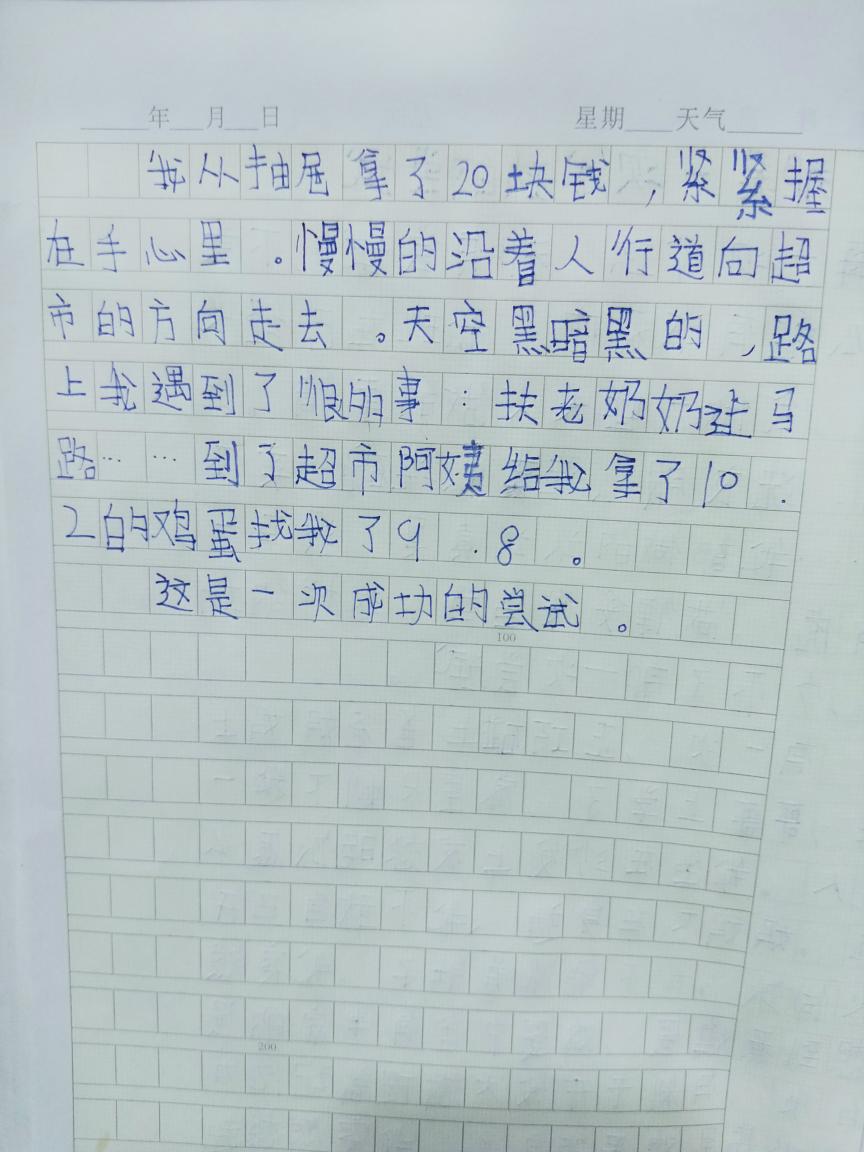 年 月 日 星期 天气
我从抽屉拿了20块钱,紧紧握
在手心里。慢慢的沿着人行道向超
市的方向走去。天空黑暗黑的,路
上我遇到了很的事:扶老奶奶过马
路……到了超市阿姨给我拿了10.
2的鸡蛋找我了9.8。
这是一次成功的尝试。
100
200